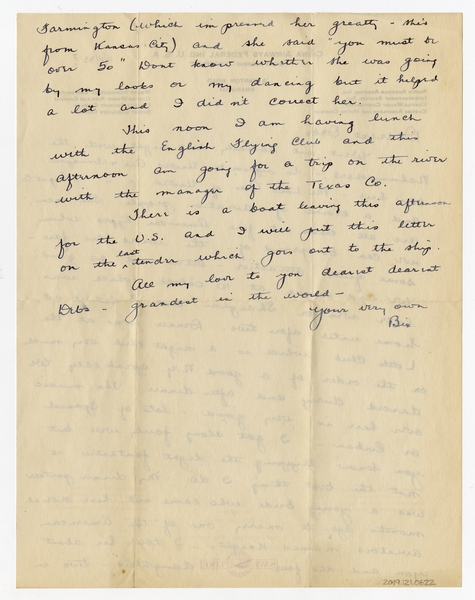 Farmington (which impressed her greatly - this
from Kansas City) and she said "you must be
over 50" Dont know whether she was going
by my looks or my dancing but it helped
a lot and I didn't correct her.
This noon I am having lunch
with the English Flying Club and this
afternoon am going for a trip on the river
with the manager of the Texas Co.
There is a boat leaving this afternoon
for the U.S. and I will put this letter
on the last tender which goes out to the ship.
All my love to you dearest dearest
Debs - grandest in the world -
Your very own
Bix
2019.121.0622